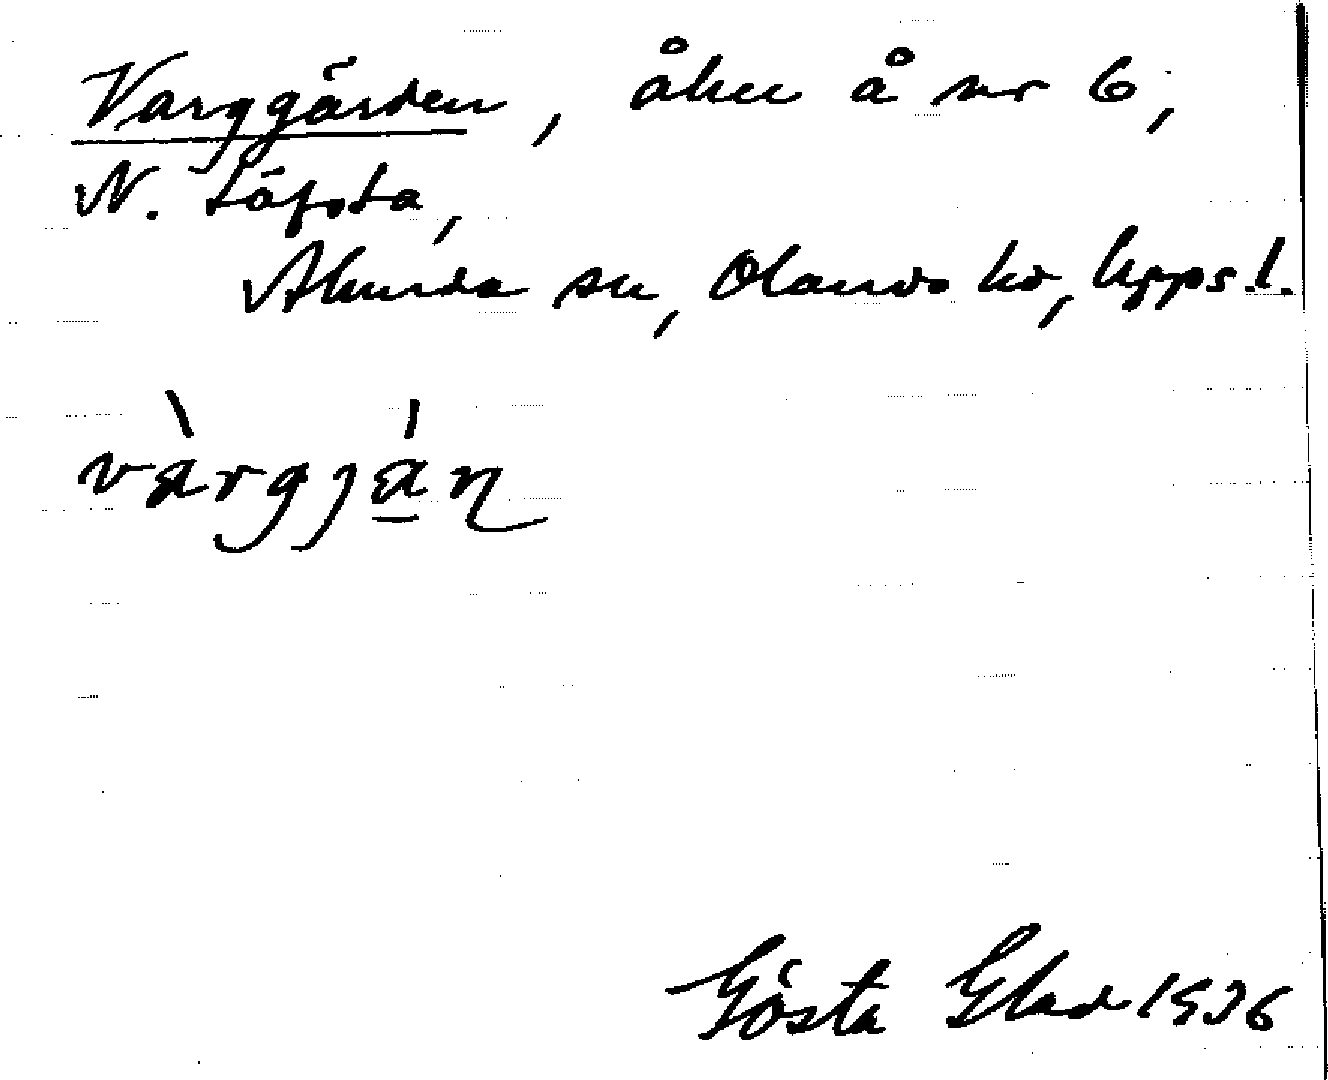 Varggärden, åker å nr 6,
N. Löfsta,
Alunda sn, Olands hd, Upps.l.
vàrgjá̲ɳ
Gösta Elad 1936